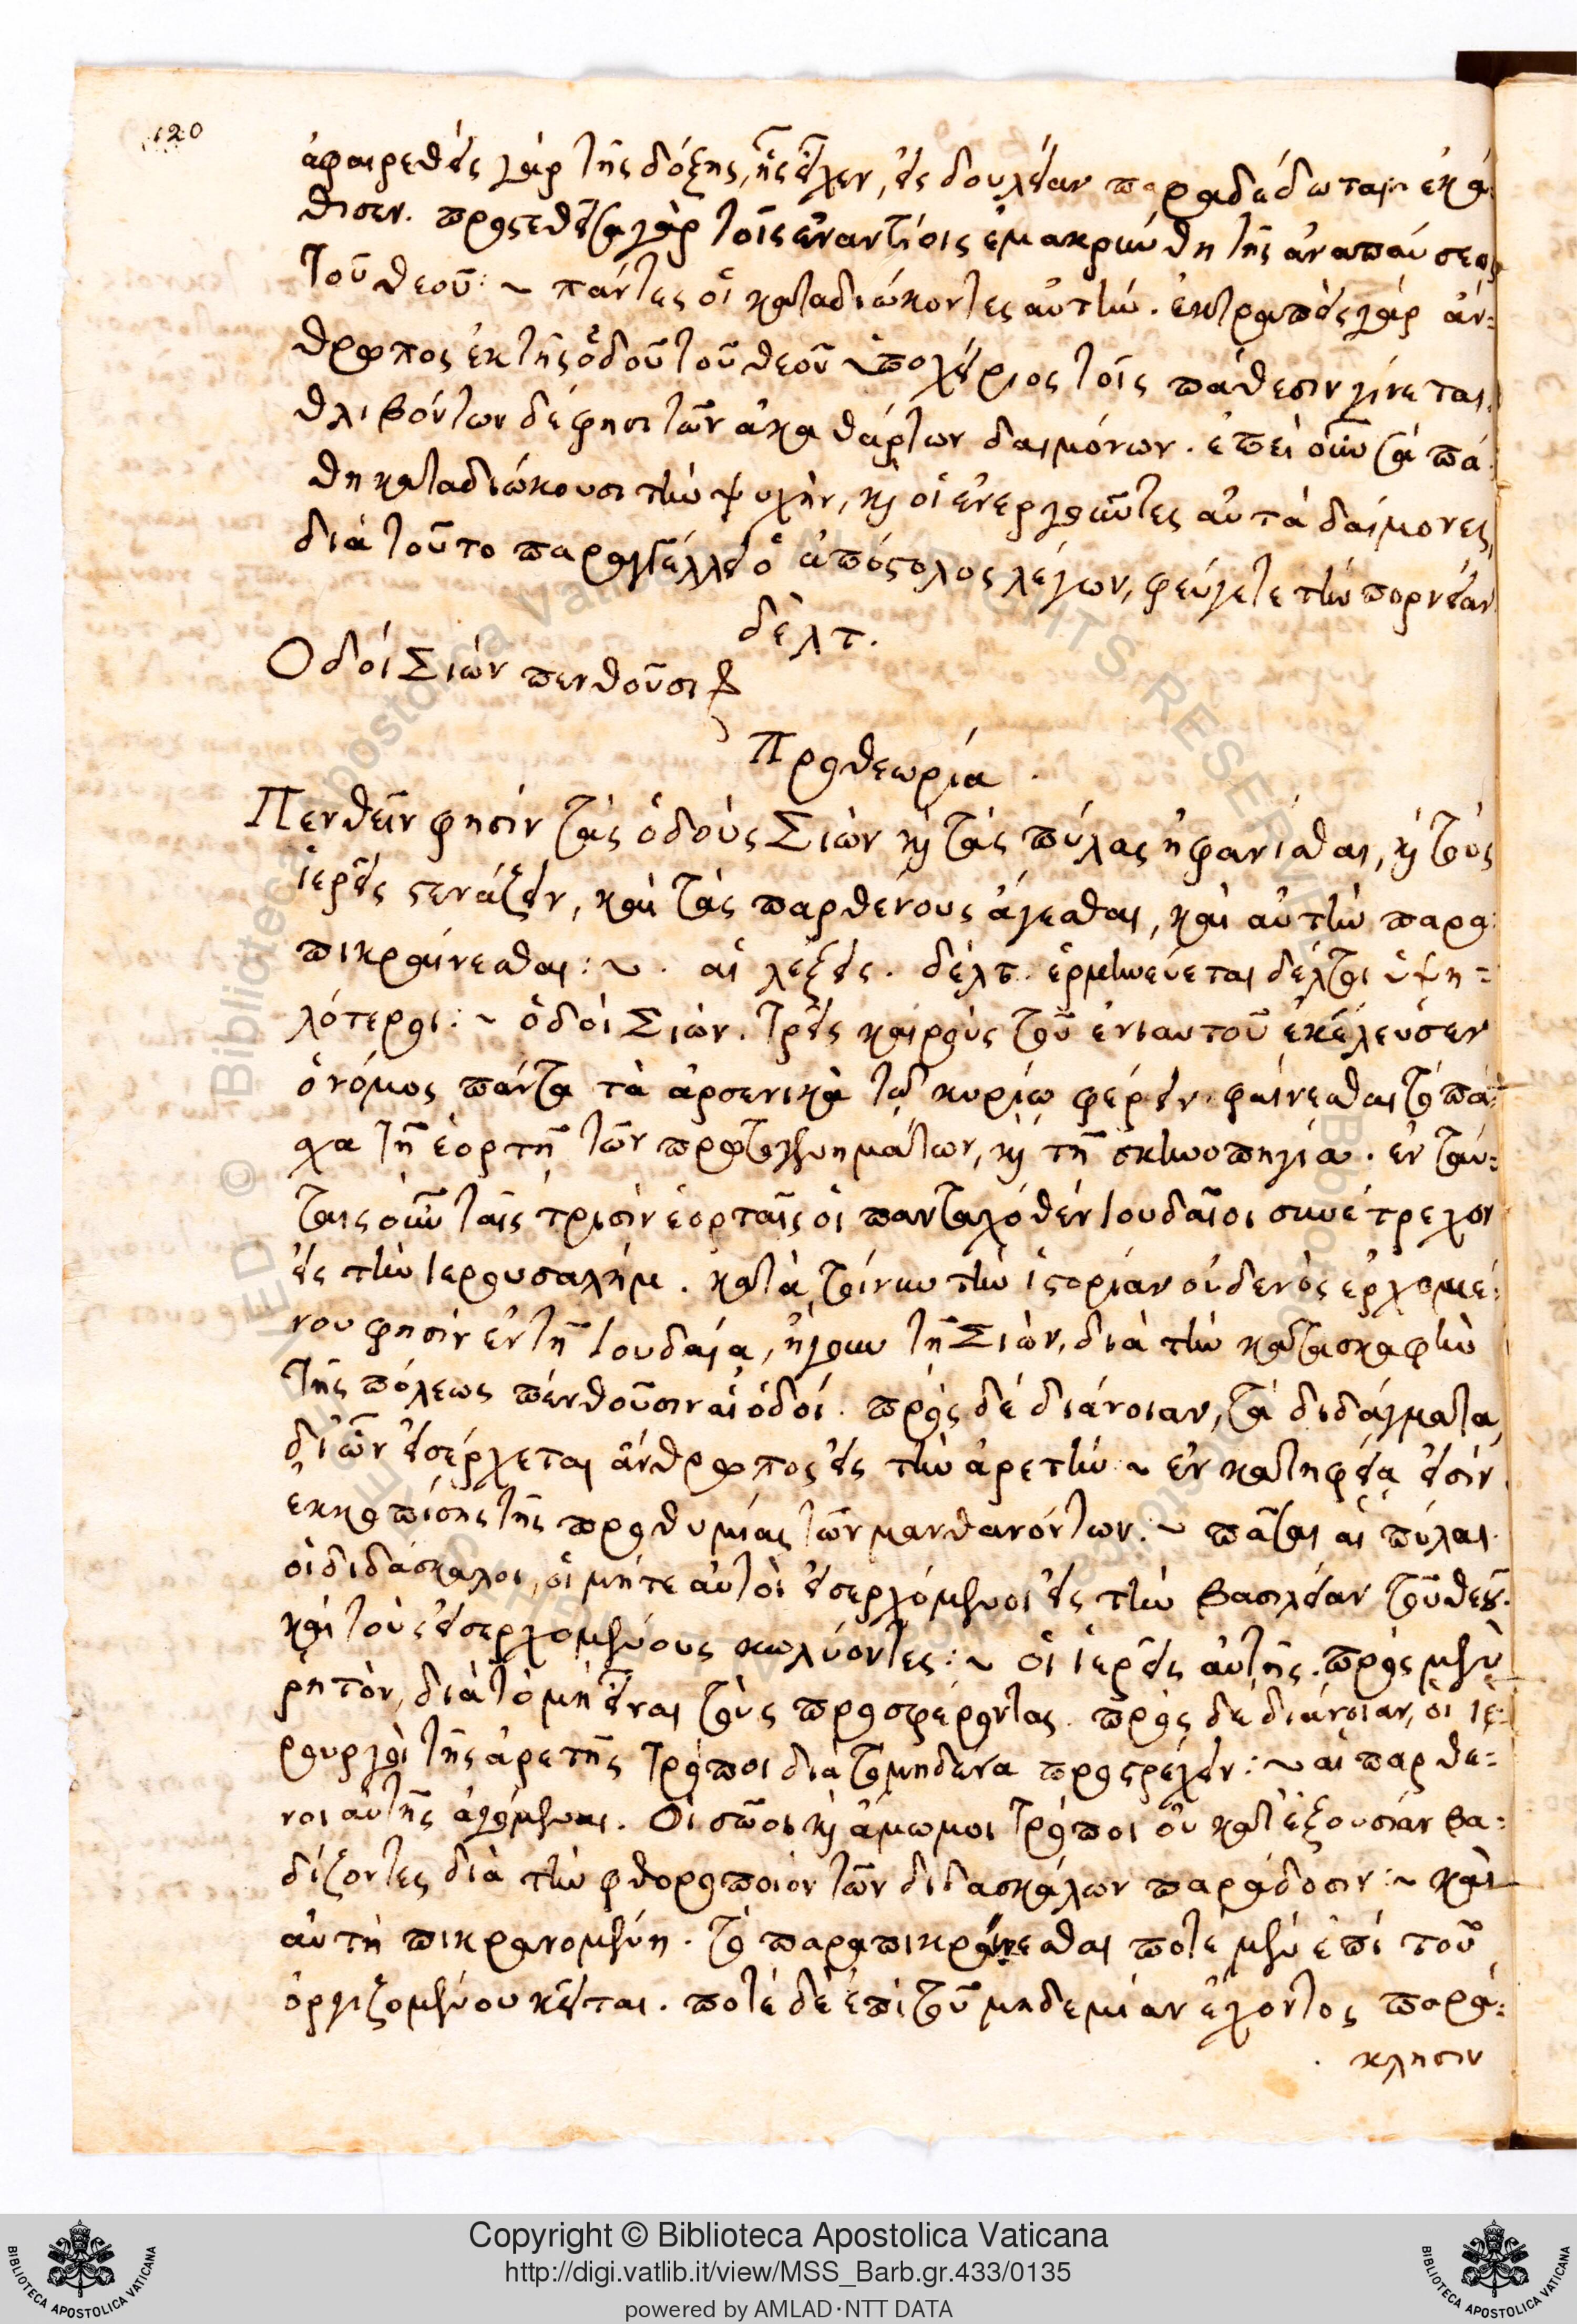 120
ἀφαιρεθεὶς γὰρ τῆς δόξης, ἧς εἶχεν, εἰς δουλείαν παραδέδωται· ἐκά-
θισεν. προστεθεῖσα γὰρ τοῖς ἐναντίοις ἐμακρύνθη τῆς ἀναπαύσεως
τοῦ θεοῦ: ~ πάντες οἱ καταδιώκοντες αὐτήν. ἐκτραπεὶς γὰρ ἄν=
θρωπος ἐκ τῆς ὁδοῦ τοῦ θεοῦ ὑποχείριος τοῖς πάθεσιν γίνεται.
θλιβόντων δέ φησι τῶν ἀκαθάρτων δαιμόνων. ἐπεὶ οὖν τὰ πά-
θη καταδιώκουσι τὴν ψυχὴν, καὶ οἱ ἐνεργοῦντες αὐτὰ δαίμονες,
διὰ τοῦτο παραγγέλλει ὁ ἀπόστολος λέγων, φεύγετε τὴν πορνείαν
δὲλτ.
Ὁδοί Σιὼν πενθοῦσι
Προθεωρία.
Πενθεῖν φησὶν τὰς ὁδοὺς Σιὼν καὶ τὰς πύλας ἠφανίσθαι, καὶ τοὺς
ἱερεῖς στενάζειν, καὶ τὰς παρθένους ἄγεσθαι, καὶ αὐτὴν παρα-
πικραίνεσθαι: ~. αἱ λέξεις. δέλτ. ἑρμηνεύεται δέλται ὑψη=
λότεραι: ~ ὁδοὶ Σιών. τρεῖς καιροὺς τοῦ ἐνιαυτοῦ ἐκέλευσεν
ὁ νόμος πάντα τὰ ἀρσενικὰ τῷ κυρίῳ φέρειν φαίνεσθαι τὸ πά=
χα τῇ ἑορτῇ τῶν πρωτογενημάτων, καὶ τῇ σκηνοπηγία. ἐν ταύ=
ταις οὖν ταῖς τρισὶν ἑορταῖς οἱ πανταχόθεν Ἰουδαῖοι συνέτρεχον
εἰς τὴν Ἱερουσαλήμ. κατὰ τοίνυν τὴν ἱστορίαν οὐδενὸς ἐρχομέ-
νου φησὶν ἐν τῇ Ἰουδαίᾳ, ἤγουν τῇ Σιὼν, διὰ τὴν κατασκαφὴν
τῆς πόλεως πένθοῦσιν αἱ ὁδοί. πρὸς δέ διάνοιαν, τὰ διδάγματα
δι᾽ ὧν εἰσέρχεται ἄνθρωπος εἰς τὴν ἀρετήν: ~ ἐν κατηφείᾳ εἰσίν.
ἐκκοπίσης τῆς προθυμίας τῶν μανθανόντων: ~ πᾶσαι αἱ πύλαι.
οἱ διδάσκαλοι, οἱ μήτε αὐτοὶ εἰσερχόμενοι εἰς τὴν βασιλείαν τοῦ θεοῦ.
καὶ τοὺς εἰσερχομένους κωλύοντες: ~ οἱ ἱερεῖς αὐτῆς. πρὸς μὲν
ρητὸν, διὰ τὸ μὴ εἶναι τοὺς προσφέροντας. πρὸς δὲ διάνοιαν, οἱ ἱε-
ρουργοὶ τῆς ἀρετῆς τρόποι διὰ τὸ μηδένα προστρέχειν: ~ αἱ παρθέ=
νοι αὐτῆς ἀγόμεναι. Οἱ σῶοι καὶ ἄμωμοι τρόποι οὐ κατ᾽ ἐξουσίαν βα=
δίζοντες διὰ τὴν φθοροποιὸν τῶν διδασκάλων παράδοσιν: ~ καὶ
αὐτὴ πικρανομένη. τὸ παραπικραίνεσθαι ποτὲ μὲν ἐπὶ τοῦ
ὀργιζομένου κεῖται. ποτὲ δὲ ἐπὶ τοῦ μηδεμίαν ἔχοντος παρά=
κλησιν
Copyright © Biblioteca Apostolica Vaticana
http://digi.vatlib.it/view/MSS_Barb.gr.433/0135
powered by AMLAD·NTT DATA
BIBLIOTECA APOSTOLICA VATICANA
BIBLIOTECA APOSTOLICA VATICANA